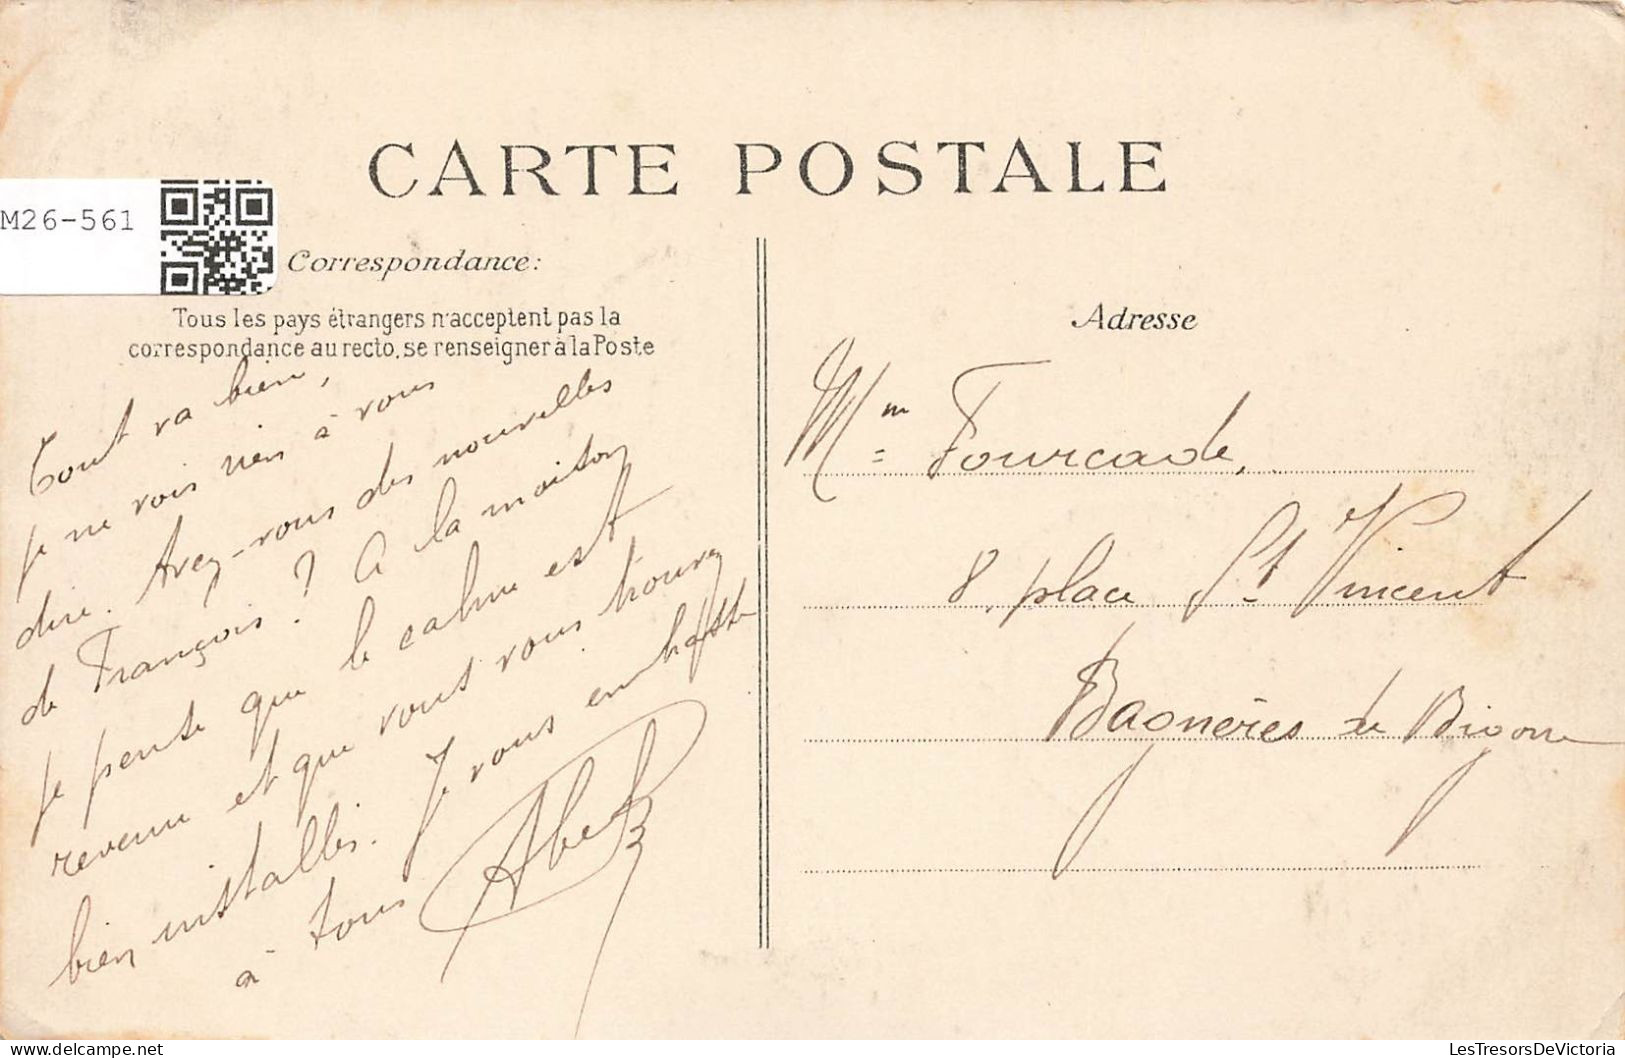 CARTE POSTALE
M26-561
Correspondance:
Tous les pays étrangers n'acceptent pas la
correspondance au recto, se renseigner à la Poste
Tout va bien,
je ne vois rien à vous
dire. Avez-vous des nouvelles
de François ? A la maison
je pense que le calme est
revenu et que vous vous trouvez
bien installés. Je vous embrasse
à tous Abel
Adresse
Mm Fourcade,
8, place St Vincent
Bagnères de Bigorre
LesTresorsDeVictoria